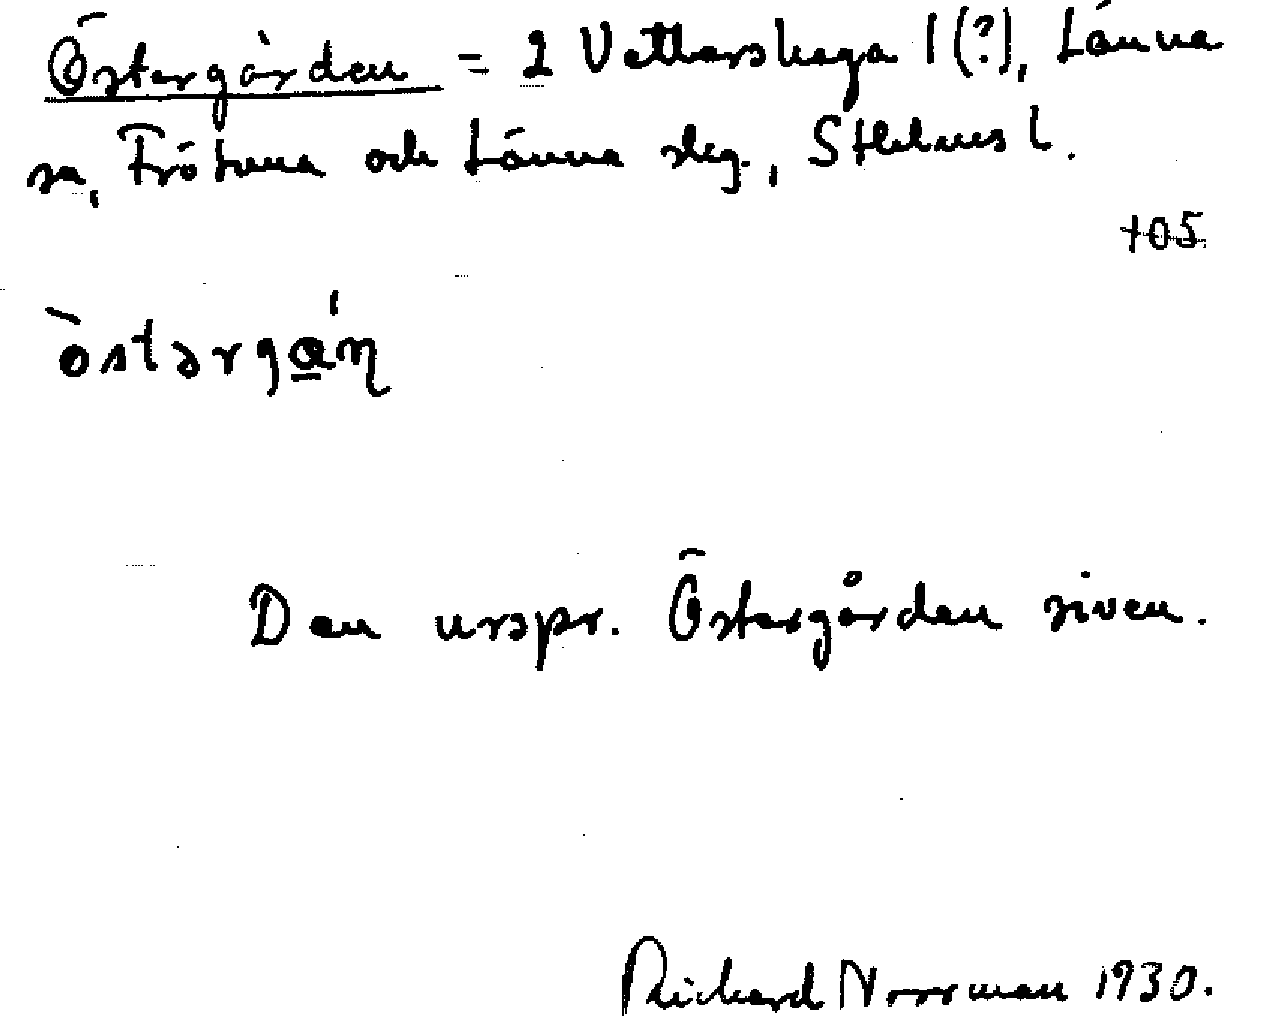 Östergården = 2 Vettershaga 1 (?), Länna
sn, Frötuna och Länna slg., Sthlms l.
+05
ò̀stərgɑ́ŋ
Den urspr. Östergården riven.
Richard Norrman 1930.